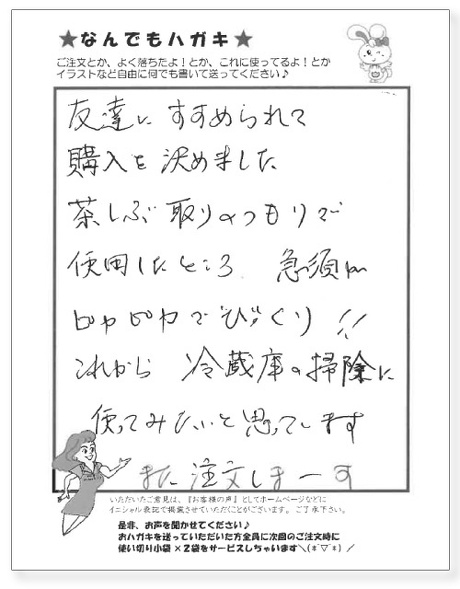 ★なんでもハガキ★
ご注文とか、よく落ちたよ！とか、これに使ってるよ！とか
イラストなど自由に何でも書いて送ってください♪
友達に すすめられて
購入を 決めました
茶しぶ 取りのつもりで
使用したところ 急須が
ピカピカで びっくり !!
これから 冷蔵庫の掃除に
使ってみたいと思っています
また 注文しまーす
いただいたご意見は、『お客様の声』としてホームページなどに
イニシャル表記で掲載させていただくことがございます。ご了承下さい。
是非、お声を聞かせてください♪
おハガキを送っていただいた方全員に次回のご注文時に
使い切り小袋 ×2袋をサービスしちゃいます＼(*ˇ▽ˇ*) ／